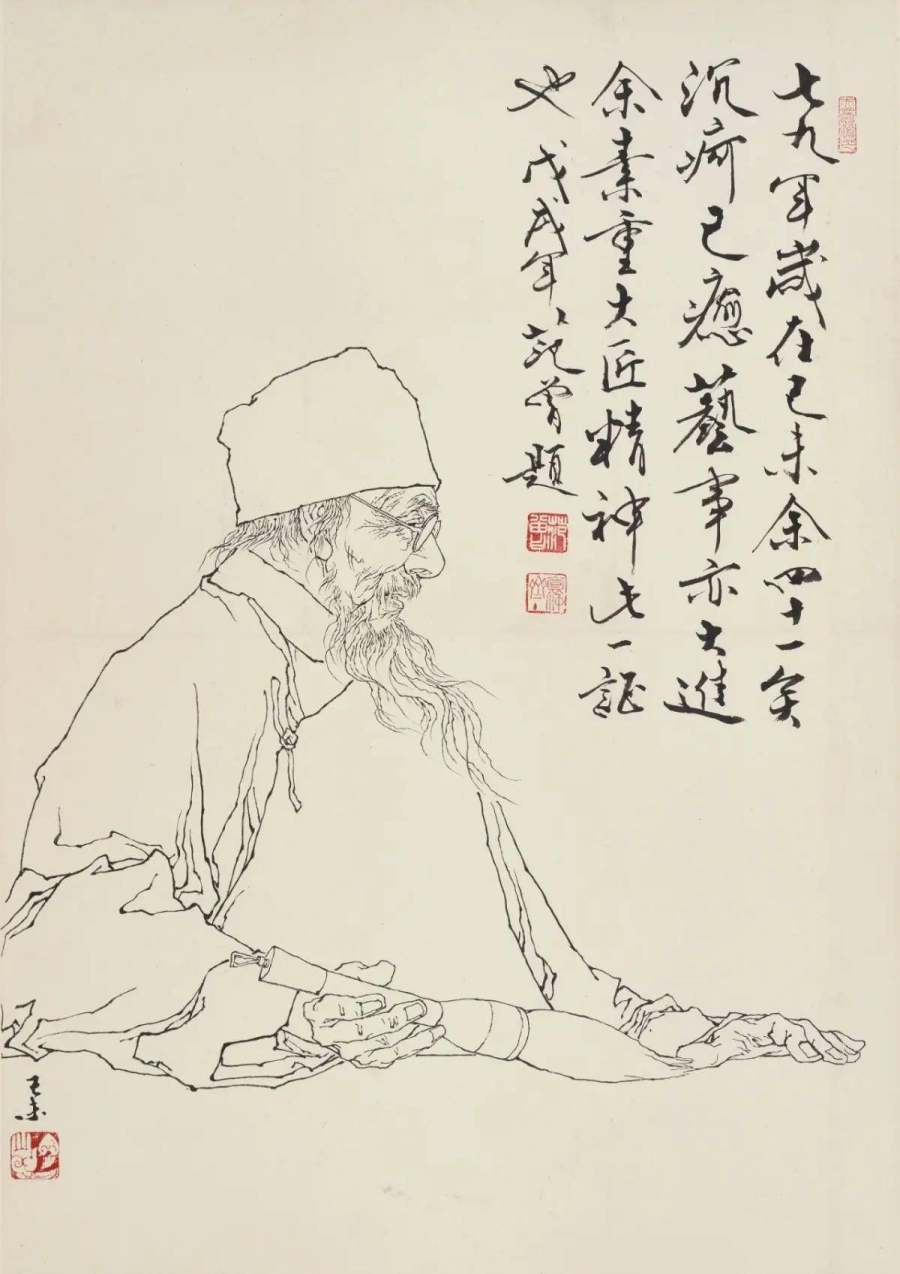 七九年岁在己未余四十一矣
沉疴已癒藝事亦大進
余素重大匠精神此一証
也 戊戌年 范曾題
己未